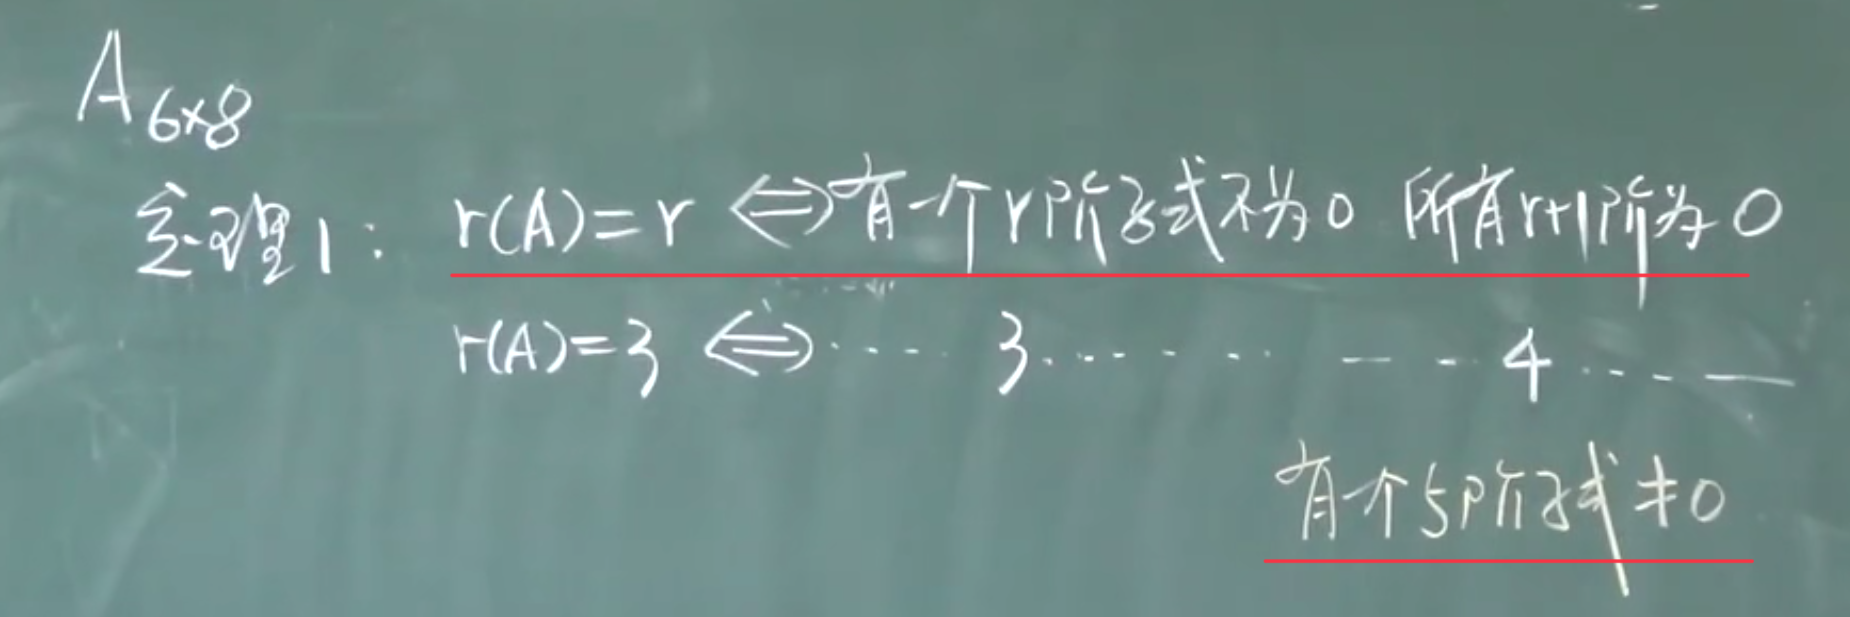 A6×8
定理1: r(A)=r ⟺ 有一个r阶子式不为0 所有r+1阶为0
r(A)=3 ⟺ ···· 3 ········ 4 ····
有个5阶子式≠0